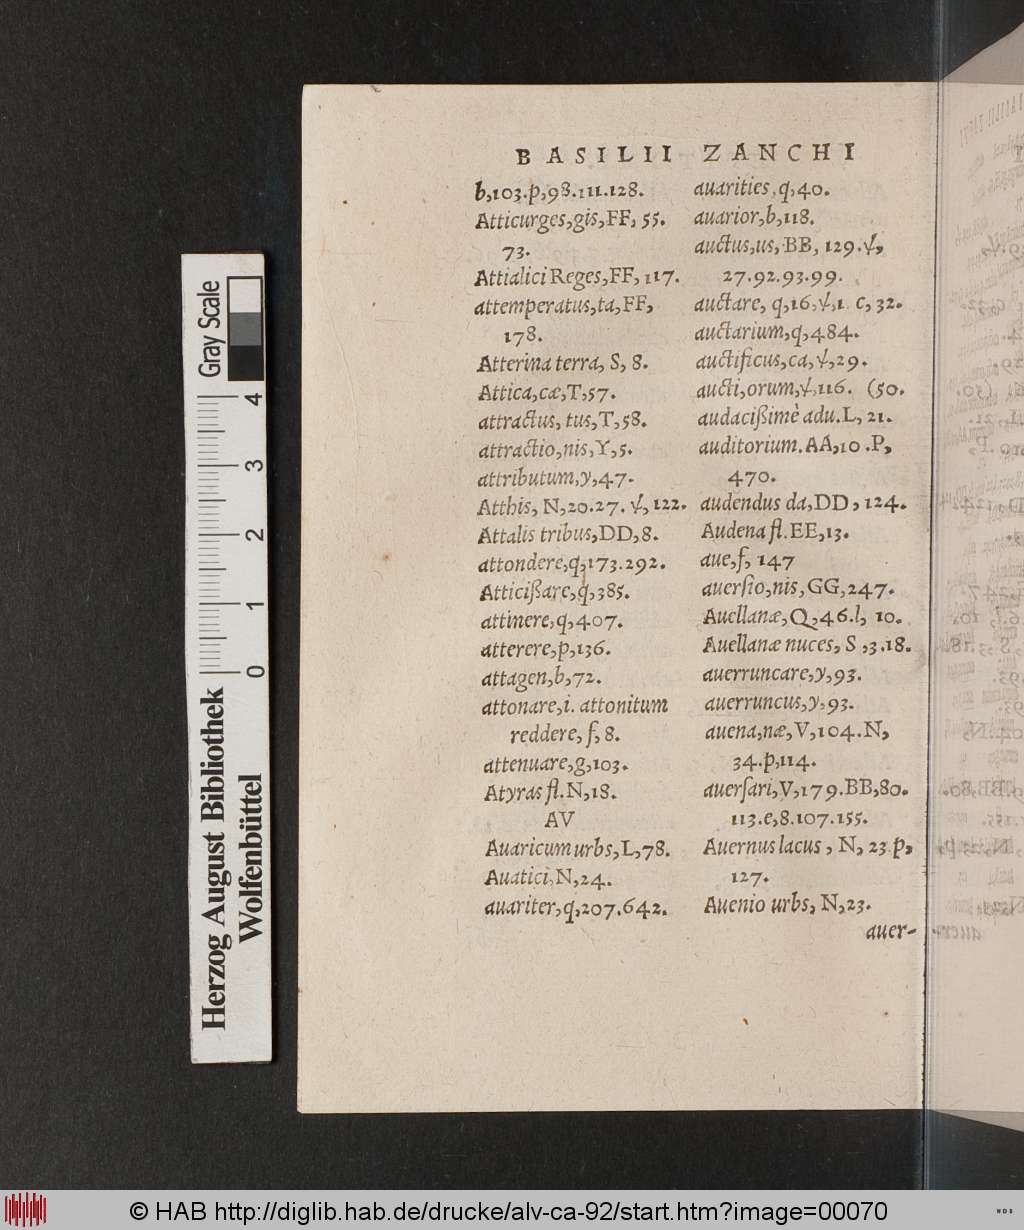 BASILII ZANCHI
b,103.p,98.111.128.
Atticurges,gis,FF, 55.
73.
Attialici Reges,FF, 117.
attemperatus,ta,FF,
178.
Atterina terra, S, 8.
Attica,cæ,T,57.
attractus, tus,T,58.
attractio,nis,Y,5.
attributum,y,47.
Atthis, N,20.27. ψ, 122.
Attalis tribus,DD,8.
attondere,q,173.292.
Atticißare,q,385.
attinere,q,407.
atterere,p,136.
attagen,b,72.
attonare,i. attonitum
reddere, f,8.
attenuare,g,103.
Atyras fl.N,18.
AV
Auaricum urbs,L,78.
Auatici,N,24.
auariter,q,207.642.
auarities,q,40.
auarior,b,118.
auctus,us, BB, 129.ψ,
27.92.93.99.
auctare, q,16,ψ,1. c, 32.
auctarium,q,484.
auctificus,ca,ψ,29.
aucti,orum,ψ,116. (50.
audacißimè adu.L, 21.
auditorium.AA,10.P,
470.
audendus da,DD, 124.
Audena fl.EE,13.
aue,f, 147
auersio,nis,GG,247.
Auellanæ,Q,46.l, 10.
Auellanæ nuces, S ,3.18.
auerruncare,y,93.
auerruncus,y,93.
auena,næ,V,104.N,
34.p,114.
auersari,V,179.BB,80.
113.e,8.107.155.
Auernus lacus, N, 23.p,
127.
Auenio urbs, N,23.
auer-
Gray Scale
0 1 2 3 4
Herzog August Bibliothek
Wolfenbüttel
© HAB http://diglib.hab.de/drucke/alv-ca-92/start.htm?image=00070